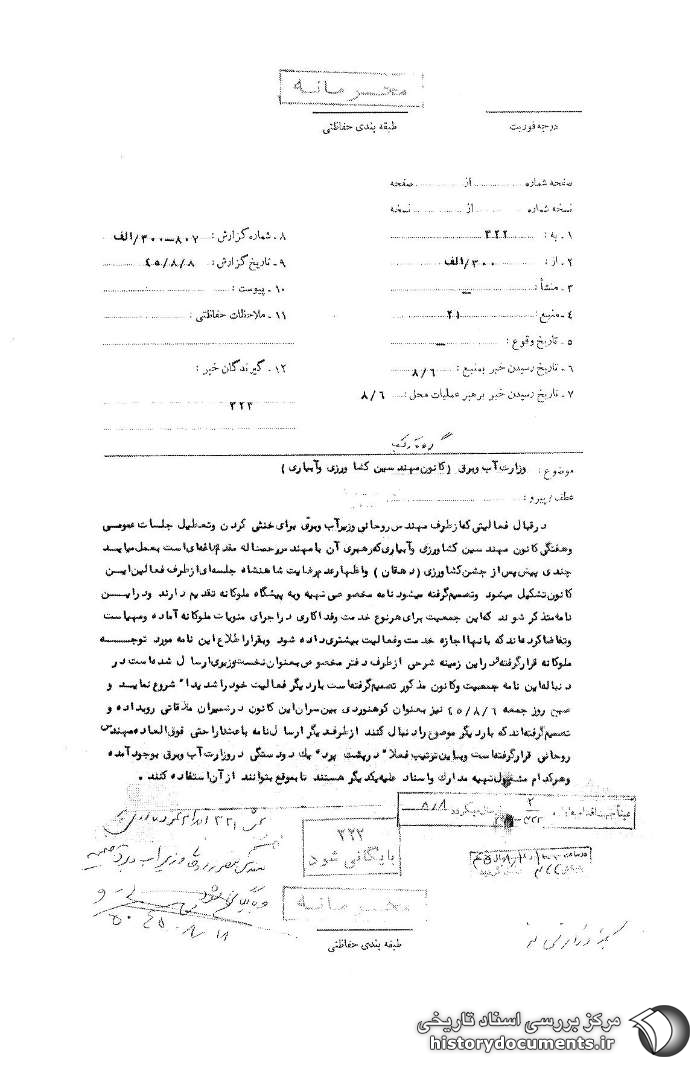 محرمانه
درجه فوریت
طبقه بندی حفاظتی
صفحه شماره از صفحه
نسخه شماره از نسخه
۱ـ به : ۳۲۲
۲ـ از : ۳۰۰/الف
۳ـ منشأ : ـ
۴ـ منبع : ۲۱
۵ـ تاریخ وقوع : ـ
۶ـ تاریخ رسیدن خبر بمنبع : ۸/۶
۷ـ تاریخ رسیدن خبر برهبر عملیات محل : ۸/۶
۸ـ شماره گزارش : ۸۰۷ـ۳۰۰/الف
۹ـ تاریخ گزارش : ۴۵/۸/۸
۱۰ـ پیوست :
۱۱ـ ملاحظات حفاظتی :
۱۲ـ گیرندگان خبر :
۳۲۲
موضوع : وزارت آب وبرق (کانون مهندسین کشاورزی وآبیاری)
عطف/پیرو :
درقبال فعالیتی که از طرف مهندس روحانی وزیر آب وبرق برای خنثی کردن وتعطیل جلسات عمومی
وهفتگی کانون مهندسین کشاورزی وآبیاری که رهبری آن با مهندس رحمت اله مقدم مراغه‌ای است بعمل میاید
چندی پیش پس از جشن کشاورزی (دهقان) واظهار عدم رضایت شاهنشاه جلسه‌ای از طرف فعالین این
کانون تشکیل میشود وتصمیم گرفته میشود نامه مخصوصی تهیه وبه پیشگاه ملوکانه تقدیم دارند ودراین
نامه متذکر شوند که این جمعیت برای هر نوع خدمت وفداکاری در اجرای منویات ملوکانه آماده ومهیاست
وتقاضا کرده‌اند که بآنها اجازه خدمت وفعالیت بیشتری داده شود وبقرار اطلاع این نامه مورد توجه
ملوکانه قرار گرفته و در این زمینه شرحی از طرف دفتر مخصوص بعنوان نخست وزیری ارسال شده است در
دنباله این نامه جمعیت وکانون مذکور تصمیم گرفته است بار دیگر فعالیت خود را شدیدا" شروع نماید و
صبح روز جمعه ۴۵/۸/۶ نیز بعنوان کوهنوردی بین سران این کانون در شمیران ملاقاتی رویداده و
تصمیم گرفته‌اند که بار دیگر موضوع را دنبال کنند از طرف دیگر ارسال نامه باعث ناراحتی فوق العاده مهندس
روحانی قرار گرفته است وباین ترتیب فعلا" درپشت پرده یک دودستگی در وزارت آب وبرق بوجود آمده
وهر کدام مشغول تهیه مدارک واسناد علیه یکدیگر هستند تا بموقع بتوانند از آن استفاده کنند .
۳۲۲
بایگانی شود
محرمانه
طبقه بندی حفاظتی
مرکز بررسی اسناد تاریخی
historydocuments.ir